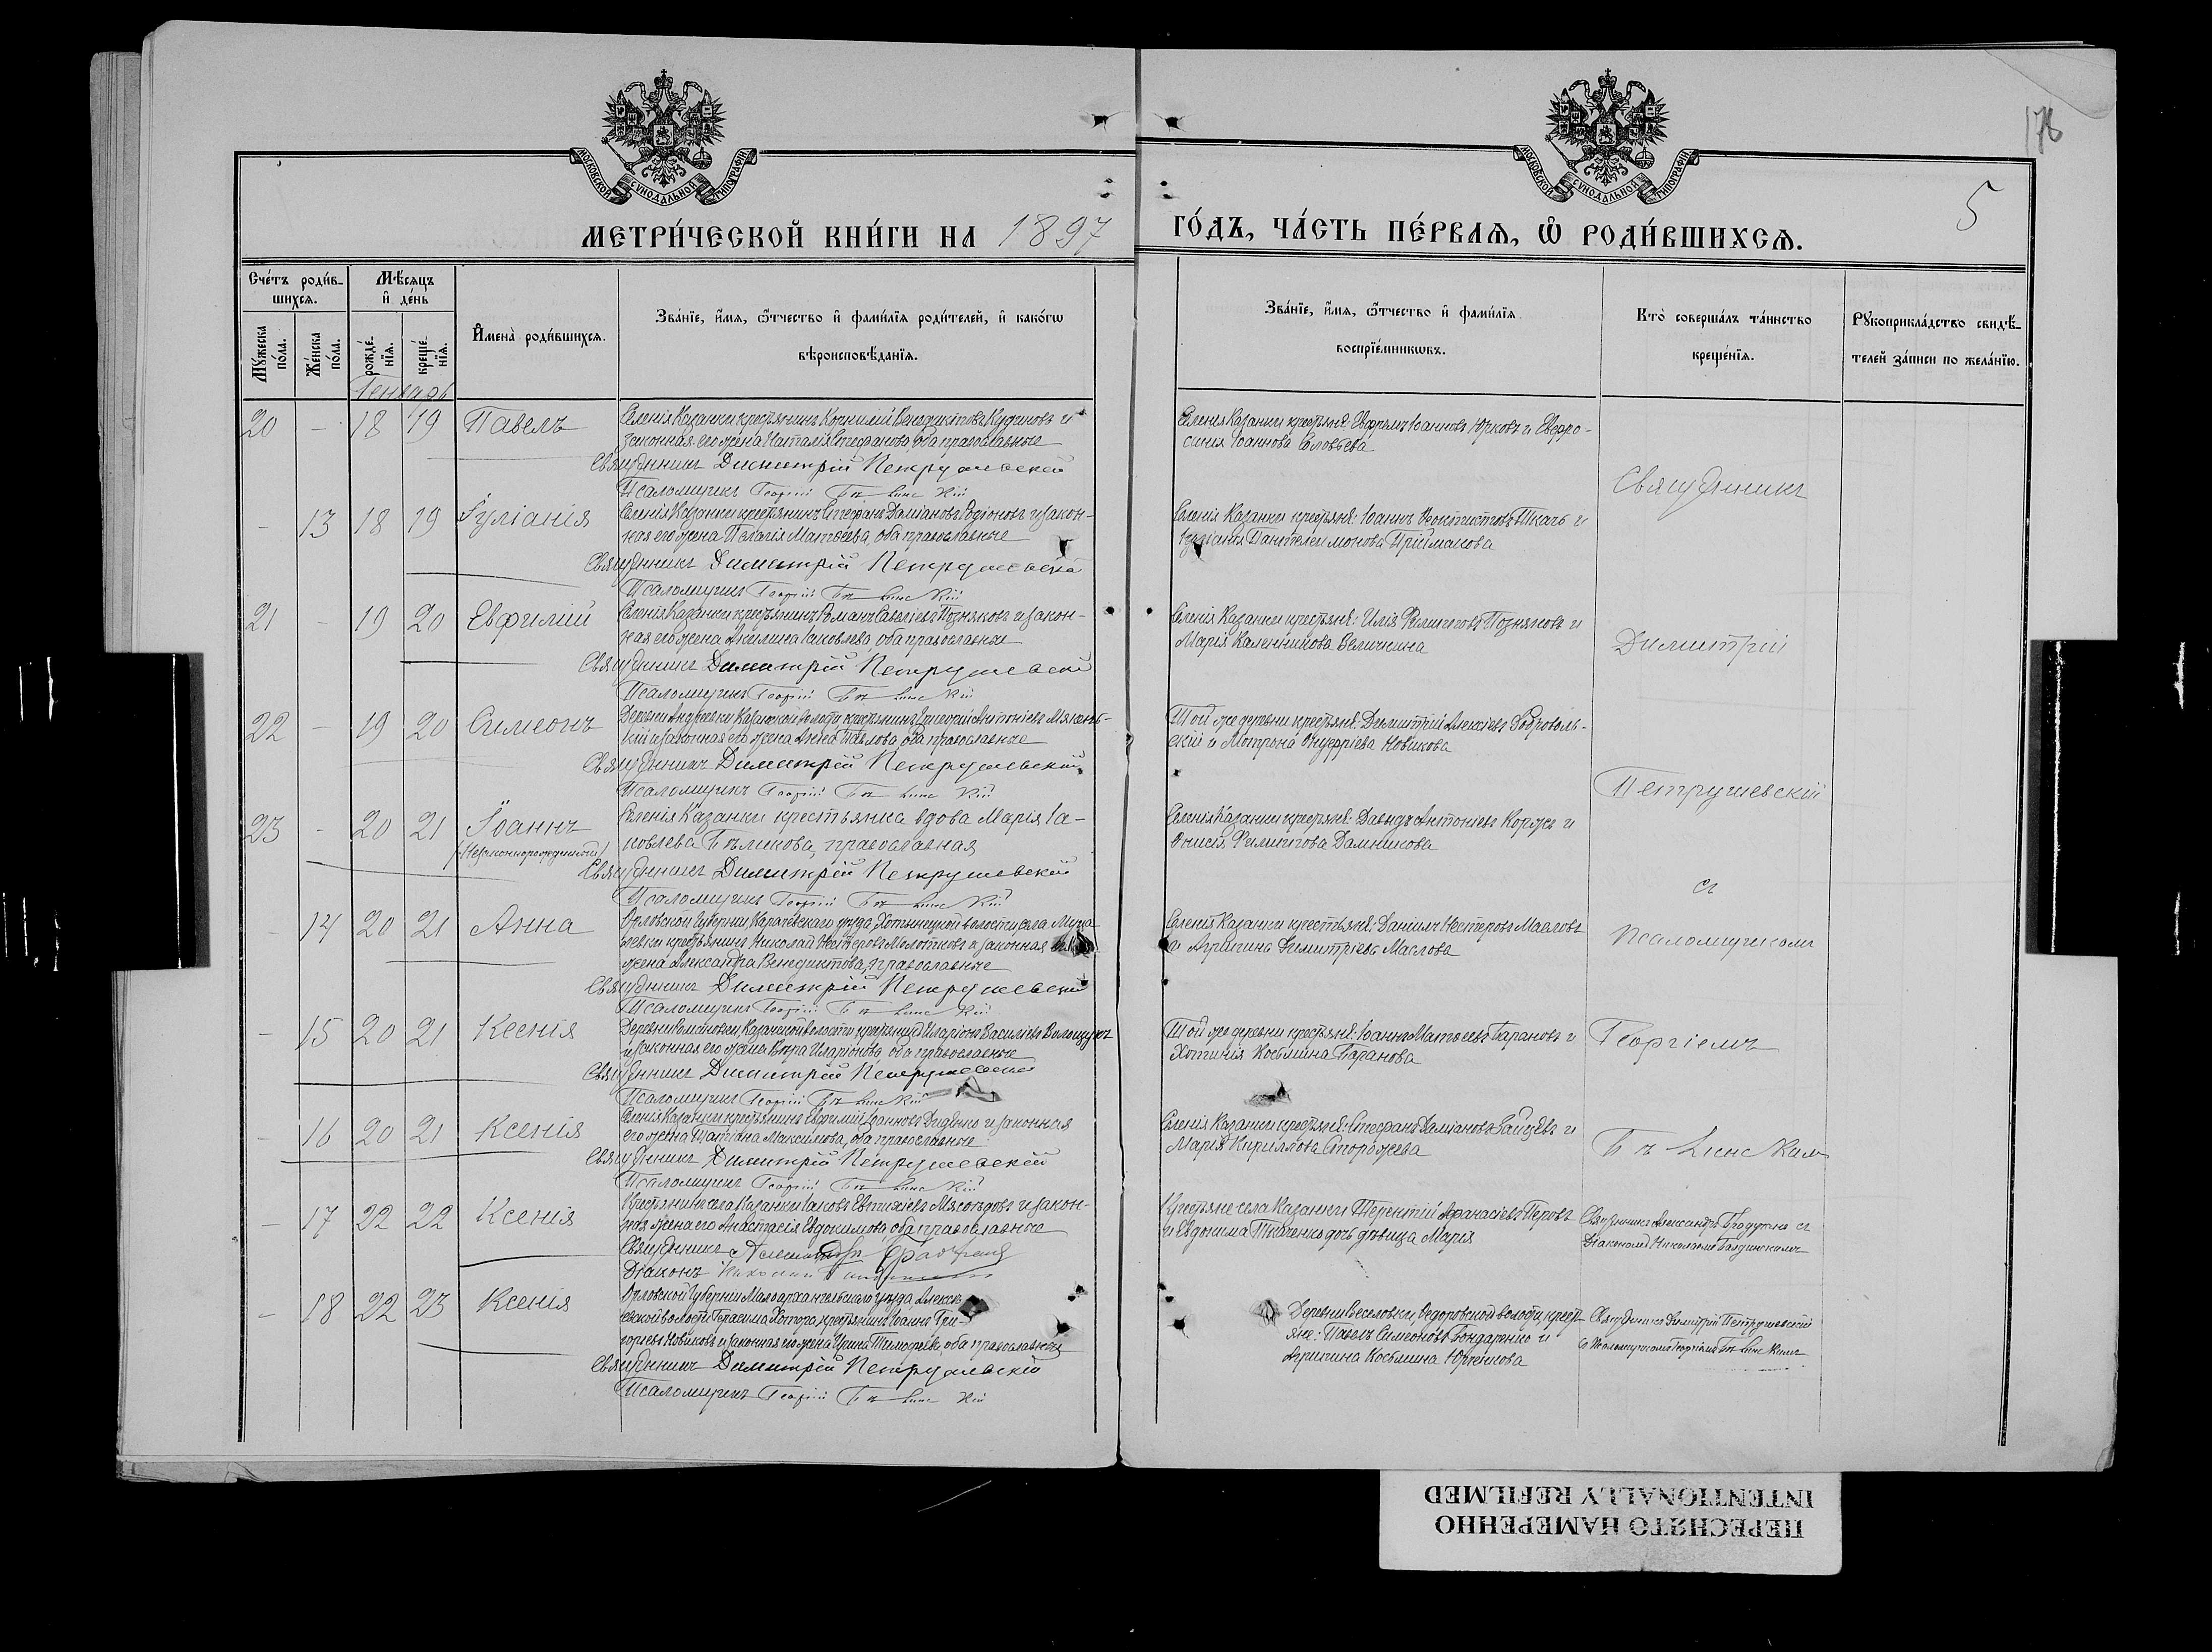 МОСКОВСКОЙ СѴНОДАЛЬНОЙ ТИПОГРАФІИ
МОСКОВСКОЙ СѴНОДАЛЬНОЙ ТИПОГРАФІИ
178
5
МЕТРИ́ЧЕСКОЙ КНИ́ГИ НА 1897 ГО́ДЪ, ЧА́СТЬ ПЕ́РВАѦ, Ѽ РОДИ́ВШИХСѦ.
Сче́тъ роди́в-
шихсѧ.
Мꙋ́жеска по́ла.
Же́нска по́ла.
Мѣ́сяцъ
и҆ де́нь
рожде́нїѧ.
креще́нїѧ.
И҆мена̀ роди́вшихсѧ.
Зва́нїе, и҆́мѧ, ѻ҆́тчество и҆ фами́лїѧ роди́телей, и҆ како́гѡ
вѣроисповѣ́данїѧ.
Зва́нїе, и҆́мѧ, ѻ҆́тчество и҆ фами́лїѧ
воспрїе́мникѡвъ.
Кто̀ соверша́лъ та́инство
креще́нїѧ.
Рꙋкоприкла́дство свидѣ́-
телей за́писи по жела́нїю.
Генварь
20 - 18 19 Павелъ
Селенія Казанки крестьянинъ Корнилій Венедиктовъ Кудиновъ и
законная его жена Наталія Стефанова, оба православные
Священникъ Димитрій Петрушевскій
Псаломщикъ Георгій
Селенія Казанки крестьяне: Ефремъ Іоанновъ Юрковъ и Евфро-
синія Іоаннова Соловьева
Священникъ
- 13 18 19 Іуліанія
Селенія Казанки крестьянинъ Стефанъ Даміановъ Родіоновъ и закон-
ная его жена Пелагія Матѳеева, оба православные
Священникъ Димитрій Петрушевскій
Псаломщикъ Георгій
Селенія Казанки крестьяне: Іоаннъ Ѳеоктистовъ Ткачъ и
Іуліанія Пантелеимонова Пріймакова
21 - 19 20 Евфимій
Селенія Казанки крестьянинъ Романъ Савеліевъ Позняковъ и закон-
ная его жена Акилина Іаковлева, оба православные
Священникъ Димитрій Петрушевскій
Псаломщикъ Георгій
Селенія Казанки крестьяне: Илія Филипповъ Позняковъ и
Марія Каленникова Величкина
Димитрій
22 - 19 20 Симеонъ
Деревни Андреевки Казанской волости крестьянинъ Григорій Антоніевъ
и законная его жена Анна Павлова, оба православные
Священникъ Димитрій Петрушевскій
Псаломщикъ Георгій
Той же деревни крестьяне: Димитрій Алексіевъ Доброволь-
скій и Мотрона Онуфріева Новикова
Петрушевскій
23 - 20 21 Іоаннъ
(Незаконнорожденный)
Селенія Казанки крестьянка вдова Марія Іа-
ковлева Бѣликова, православная
Священникъ Димитрій Петрушевскій
Псаломщикъ Георгій
Селенія Казанки крестьяне: Давидъ Антоніевъ Коржъ и
Онисія Филиппова Данникова
съ
- 14 20 21 Анна
Орловской Губерніи, Карачевскаго уѣзда, Хотынецкой волости, села
крестьянинъ Николай Нестеровъ Молотковъ и законная
жена Александра Венедиктова, православные
Священникъ Димитрій Петрушевскій
Псаломщикъ Георгій
Селенія Казанки крестьяне: Даніилъ Нестеровъ Масловъ
и Агрипина Димитріева Маслова
Псаломщикомъ
- 15 20 21 Ксенія
Деревни Казанской волости крестьянинъ Иларіонъ Василіевъ Волощукъ
и законная его жена Вѣра Иларіонова, оба православные
Священникъ Димитрій Петрушевскій
Псаломщикъ Георгій
Той же деревни крестьяне: Іоаннъ Матѳеевъ Барановъ и
Хотинія Косьмина Баранова
Георгіемъ
- 16 20 21 Ксенія
Селенія Казанки крестьянинъ Евфимій Іоанновъ Диденко и законная
его жена Татіана Максимова, оба православные
Священникъ Димитрій Петрушевскій
Псаломщикъ Георгій
Селенія Казанки крестьяне: Стефанъ Даміановъ Зайцевъ и
Марія Кириллова Сторожева
- 17 22 22 Ксенія
Крестьянинъ села Казанки Іаковъ Евтихіевъ Мясоѣдовъ и закон-
ная жена его Анастасія Евдокимова, оба православные
Священникъ Александръ
Діаконъ Николай
Крестьяне села Казанки Терентій Аѳанасіевъ Перовъ
и Евдокима Ткаченко дочь дѣвица Марія
Священникъ Александръ съ
Діакономъ Николаемъ
- 18 22 23 Ксенія
Орловской Губерніи Малоархангельскаго уѣзда, Алексѣ-
евской волости крестьянинъ Іоаннъ Гри-
горіевъ Новиковъ и законная его жена Ирина Тимоѳеева, оба православные
Священникъ Димитрій Петрушевскій
Псаломщикъ Георгій
Деревни Веселовки, Ѳедоровской волости, кресть-
яне: Павелъ Симеоновъ Бондаренко и
Агрипина Косьмина Юрченкова
Священникъ Димитрій Петрушевскій
съ Псаломщикомъ Георгіемъ
ПЕРЕСНЯТО НАМЕРЕННО
INTENTIONALLY REFILMED